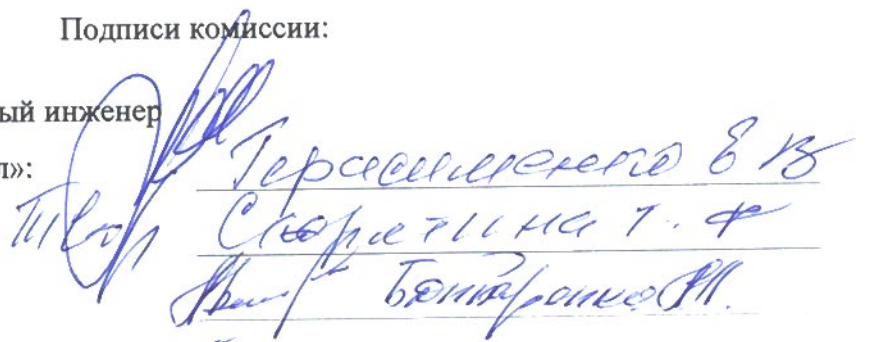 Подписи комиссии:
ый инженер
л»: Герасименко Е В
Скорятина Т. Ф
Бондаренко